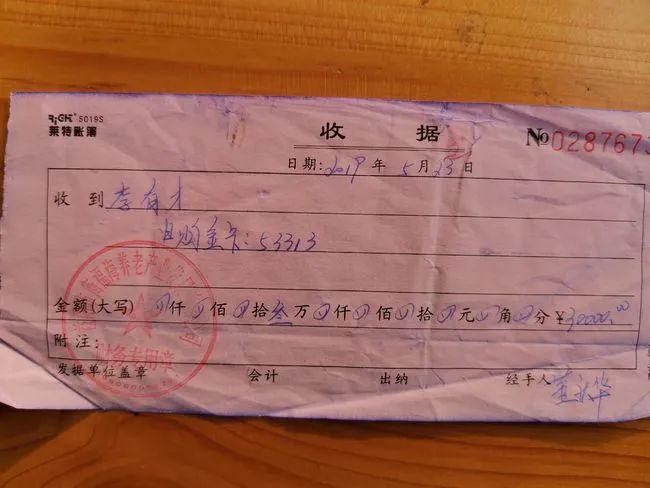 RiGHT 5019S
莱特账簿
收 据
№ 0287673
日期: 2019 年 5 月 23 日
收 到 李有才
自购金卡: 53313
金额(大写) 0仟0佰0拾叁万0仟0佰0拾0元0角0分 ¥30000.00
附 注:
养老产业
财务专用章
发据单位盖章 会计 出纳 经手人